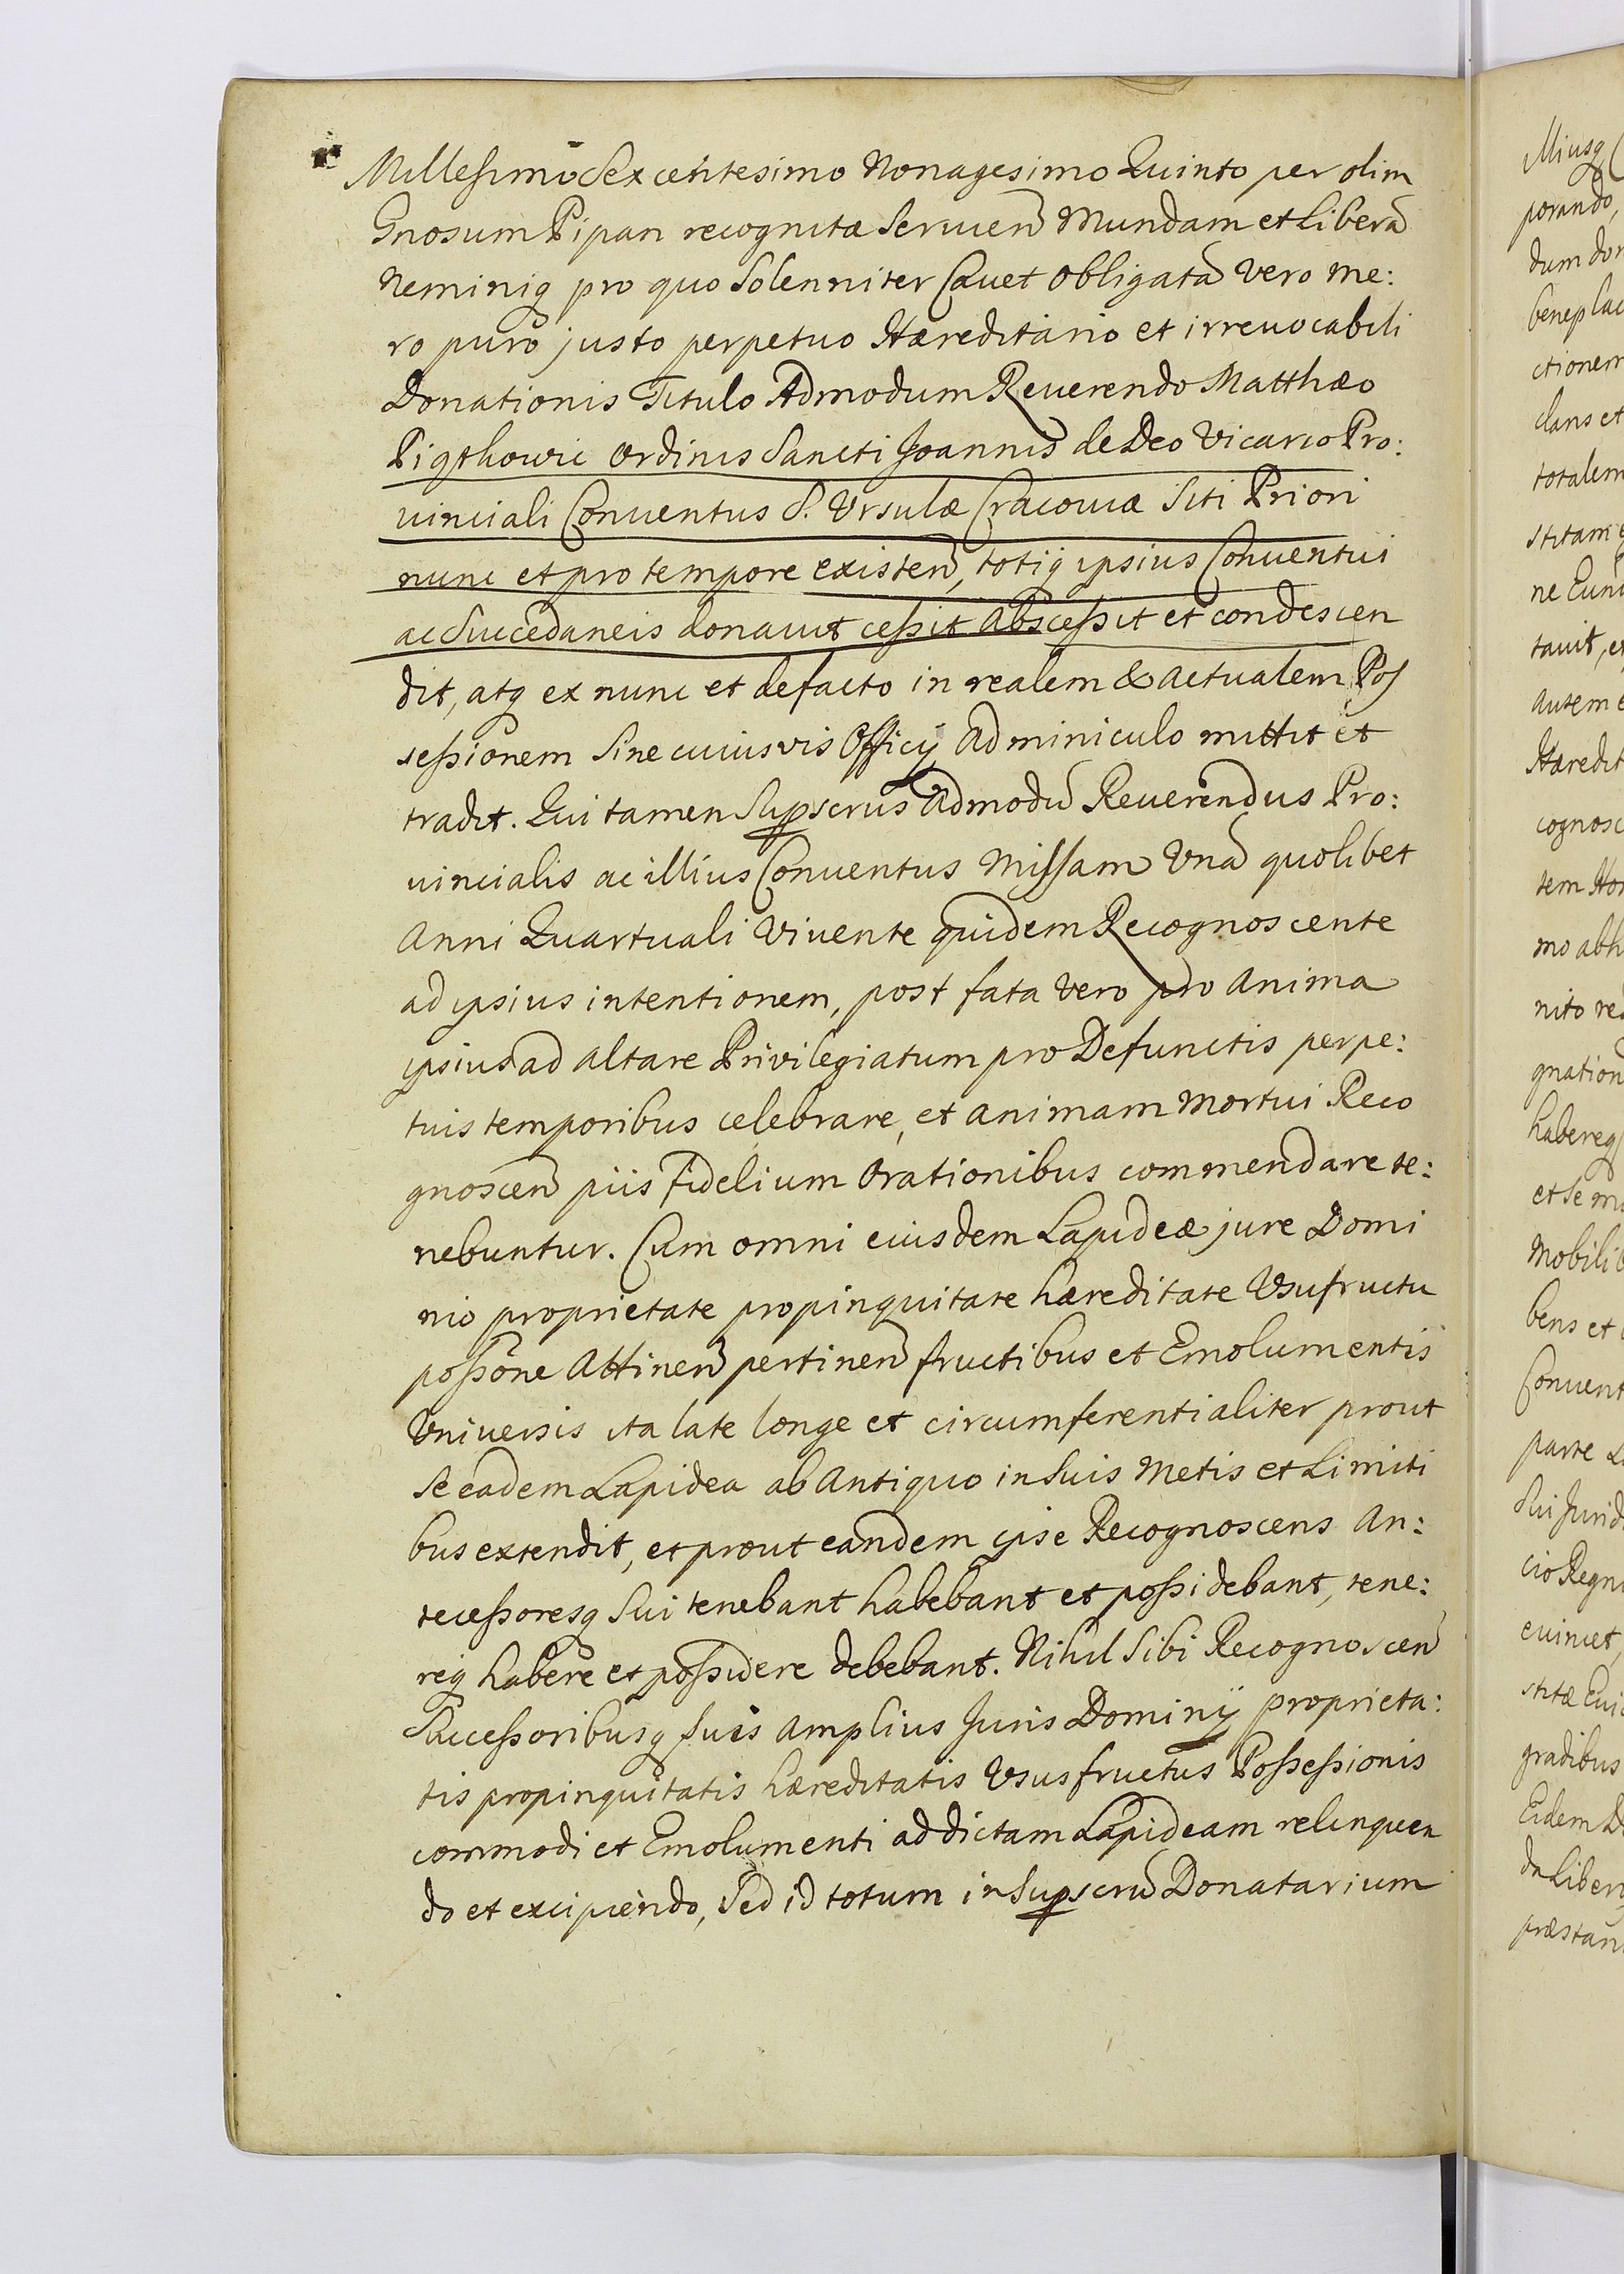 Millesimō Sexcentesimo Nonagesimo Quinto per olim
Gnosum Pipan recognitæ Seruien̄ Mundam et Liberā
Neminiq pro quo Solenniter Cavet Obligatā Vero me:
ro puro justo perpetuo Hæreditario et irrevocabili
Donationis Titulo Admodum Reuerendo Matthæo
Piqthowic Ordinis Sancti Joannis de Deo Vicario Pro:
uinciali Conuentus S. Vrsulæ Cracouiæ Siti Priori
nunc et pro tempore existen̄, totiq ipsius Conuentui
ac Succedaneis donauit cessit Abscessit et condescen
dit, atq ex nunc et defacto in realem & actualem Pos
sessionem Sine cuiusvis Officÿ Adminiculo mittit et
tradit. Qui tamen Supscrus Admodū Reuerendus Pro:
uincialis ac illius Conuentus Missam Vnā quolibet
Anni Quartuali Viuente quidem Recognoscente
ad ipsius intentionem, post fata vero pro Anima
ipsius ad altare Privilegiatum pro Defunctis perpe:
tuis temporibus celebrare, et animam Mortui Reco
gnoscen̄ piis Fidelium Orationibus commendare te:
nebuntur. Cum omni eiusdem Lapideæ jure Domi
nio proprietate propinquitate hæreditate Vsufructu
possōne Attinen̄ pertinen̄ fructibus et Emolumentis
Vniuersis ita late longe et circumferentialiter prout
se eadem Lapidea ab Antiquo in Suis Metis et Limiti
bus extendit, et prout eandem ipse Recognoscens An:
tecessoresq Sui tenebant habebant et possidebant, tene:
req habere et possidere debebant. Nihil Sibi Recognoscen̄
Successoribusq suis Amplius Juris Dominÿ proprieta:
tis propinquitatis hæreditatis Vsusfructus Possessionis
commodi et Emolumenti ad dictam Lapideam relinquen
do et excipiendo, Sed id totum in Supscrū Donatarium